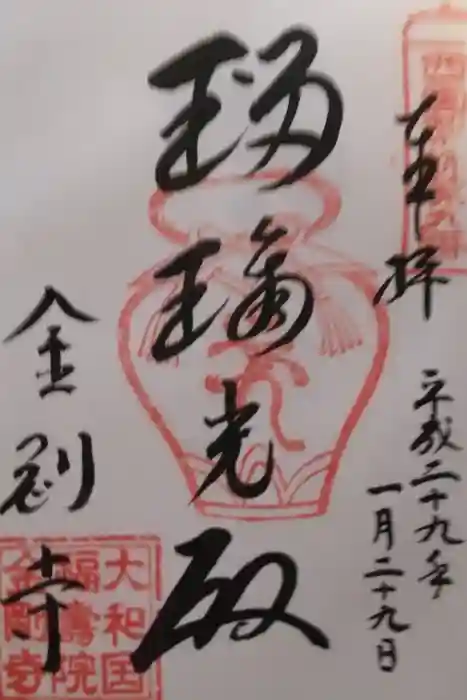 奉拝
平成二十九年
一月二十九日
瑠璃光殿
金剛寺
大和国
福壽院
金剛寺